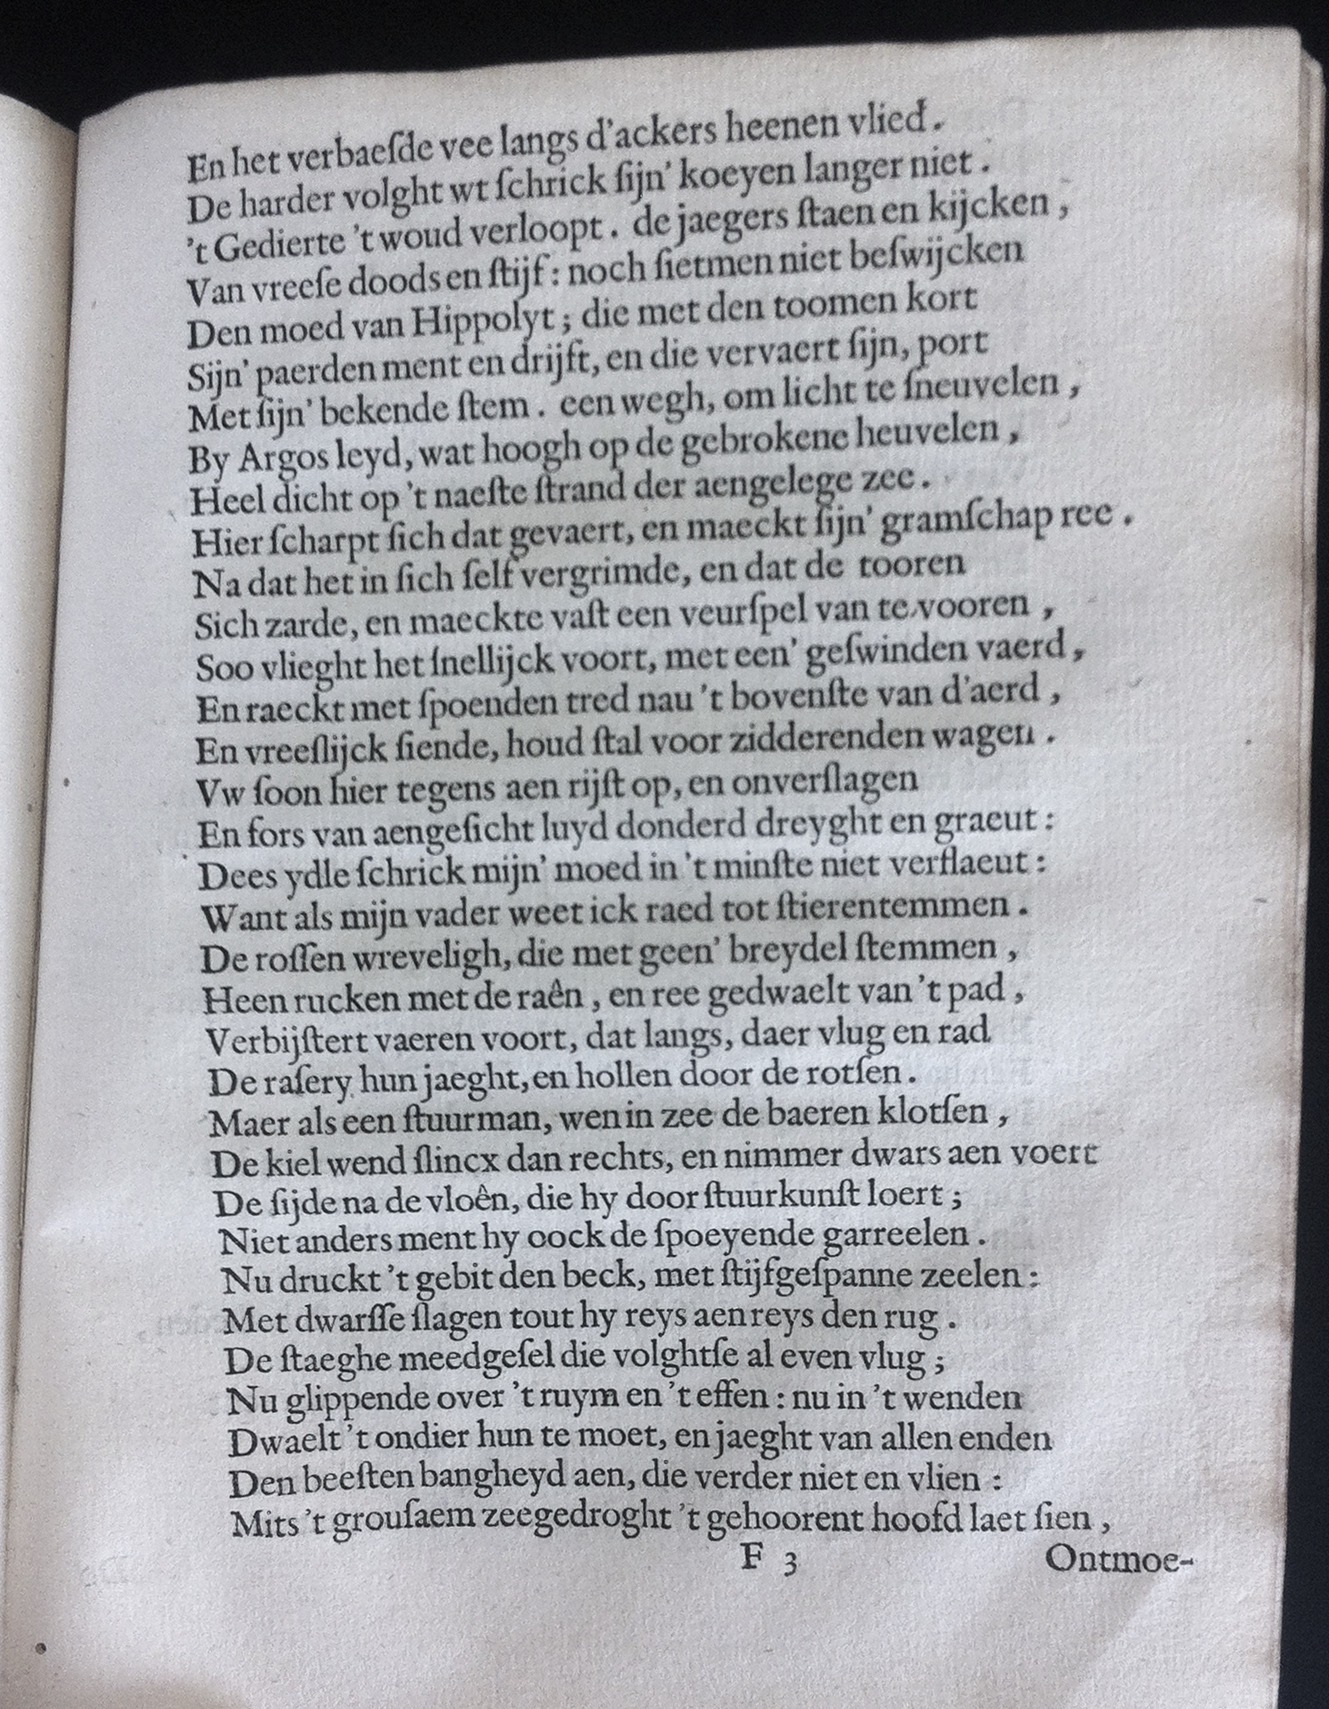 En het verbaeſde vee langs d'ackers heenen vlied.
De harder volght wt ſchrick ſijn' koeyen langer niet.
't Gedierte 't woud verloopt. de jaegers ſtaen en kijcken,
Van vreeſe doods en ſtijf: noch ſietmen niet beſwijcken
Den moed van Hippolyt; die met den toomen kort
Sijn' paerden ment en drijft, en die vervaert ſijn, port
Met ſijn' bekende ſtem. een wegh, om licht te ſneuvelen,
By Argos leyd, wat hoogh op de gebrokene heuvelen,
Heel dicht op 't naeſte ſtrand der aengelege zee.
Hier ſcharpt ſich dat gevaert, en maeckt ſijn' gramſchap ree.
Na dat het in ſich ſelf vergrimde, en dat de tooren
Sich zarde, en maeckte vaſt een veurſpel van te vooren,
Soo vlieght het ſnellijck voort, met een' geſwinden vaerd,
En raeckt met ſpoenden tred nau 't bovenſte van d'aerd,
En vreeſlijck ſiende, houd ſtal voor zidderenden wagen.
Vw ſoon hier tegens aen rijſt op, en onverſlagen
En fors van aengeſicht luyd donderd dreyght en graeut:
Dees ydle ſchrick mijn' moed in 't minſte niet verflaeut:
Want als mijn vader weet ick raed tot ſtierentemmen.
De roſſen wreveligh, die met geen' breydel ſtemmen,
Heen rucken met de raên, en ree gedwaelt van 't pad,
Verbijſtert vaeren voort, dat langs, daer vlug en rad
De raſery hun jaeght, en hollen door de rotſen.
Maer als een ſtuurman, wen in zee de baeren klotſen,
De kiel wend ſlincx dan rechts, en nimmer dwars aen voert
De ſijde na de vloên, die hy door ſtuurkunſt loert;
Niet anders ment hy oock de ſpoeyende garreelen.
Nu druckt 't gebit den beck, met ſtijfgeſpanne zeelen:
Met dwarſſe ſlagen tout hy reys aen reys den rug.
De ſtaeghe meedgeſel die volghtſe al even vlug;
Nu glippende over 't ruym en 't effen: nu in 't wenden
Dwaelt 't ondier hun te moet, en jaeght van allen enden
Den beeſten bangheyd aen, die verder niet en vlien:
Mits 't grouſaem zeegedroght 't gehoorent hoofd laet ſien,
F 3 Ontmoe-